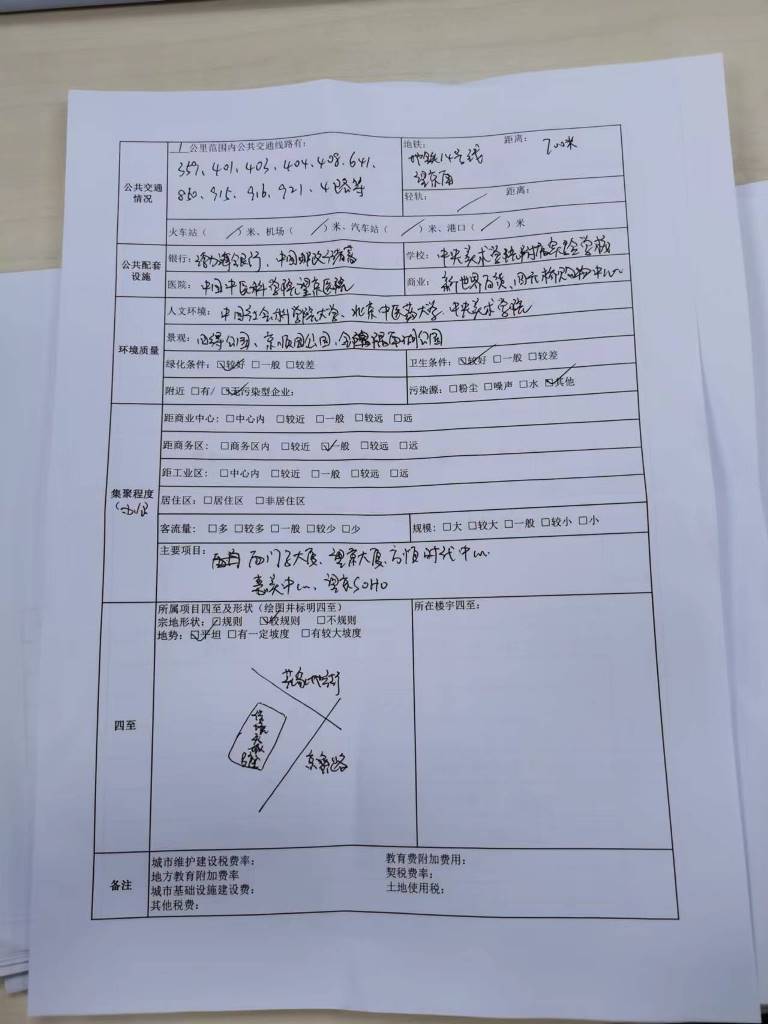 1公里范围内公共交通线路有:
359、401、403、404、408、641、
850、915、916、921、4路等
地铁: 距离: 700米
地铁14号线
望京南
轻轨: 距离:
公共交通
情况
火车站( / )米、机场( / )米、汽车站( / )米、港口( / )米
公共配套
设施
银行: 银行、中国邮政储蓄
学校: 中央美术学院附属实验学校
医院: 中国中医科学院望京医院
商业: 新世界百货、购物中心
环境质量
人文环境: 中国社会科学院大学、北京中医药大学、中央美术学院
景观: 四得公园、京顺园公园、公园
绿化条件: ☑较好 □一般 □较差
卫生条件: ☑较好 □一般 □较差
附近 □有/ ☑无污染型企业:
污染源: □粉尘 □噪声 □水 ☑其他
集聚程度
距商业中心: □中心内 □较近 □一般 □较远 □远
距商务区: □商务区内 □较近 ☑一般 □较远 □远
距工业区: □中心内 □较近 □一般 □较远 □远
居住区: □居住区 □非居住区
客流量: □多 □较多 □一般 □较少 □少
规模: □大 □较大 □一般 □较小 □小
主要项目: 西门子大厦、望京大厦、方恒时代中心
嘉美中心、望京SOHO
四至
所属项目四至及形状(绘图并标明四至)
宗地形状: □规则 ☑较规则 □不规则
地势: ☑平坦 □有一定坡度 □有较大坡度
所在楼宇四至:
花家地街
京密路
备注
城市维护建设税费率: 教育费附加费用:
地方教育附加费率 契税费率:
城市基础设施建设费: 土地使用税:
其他税费: